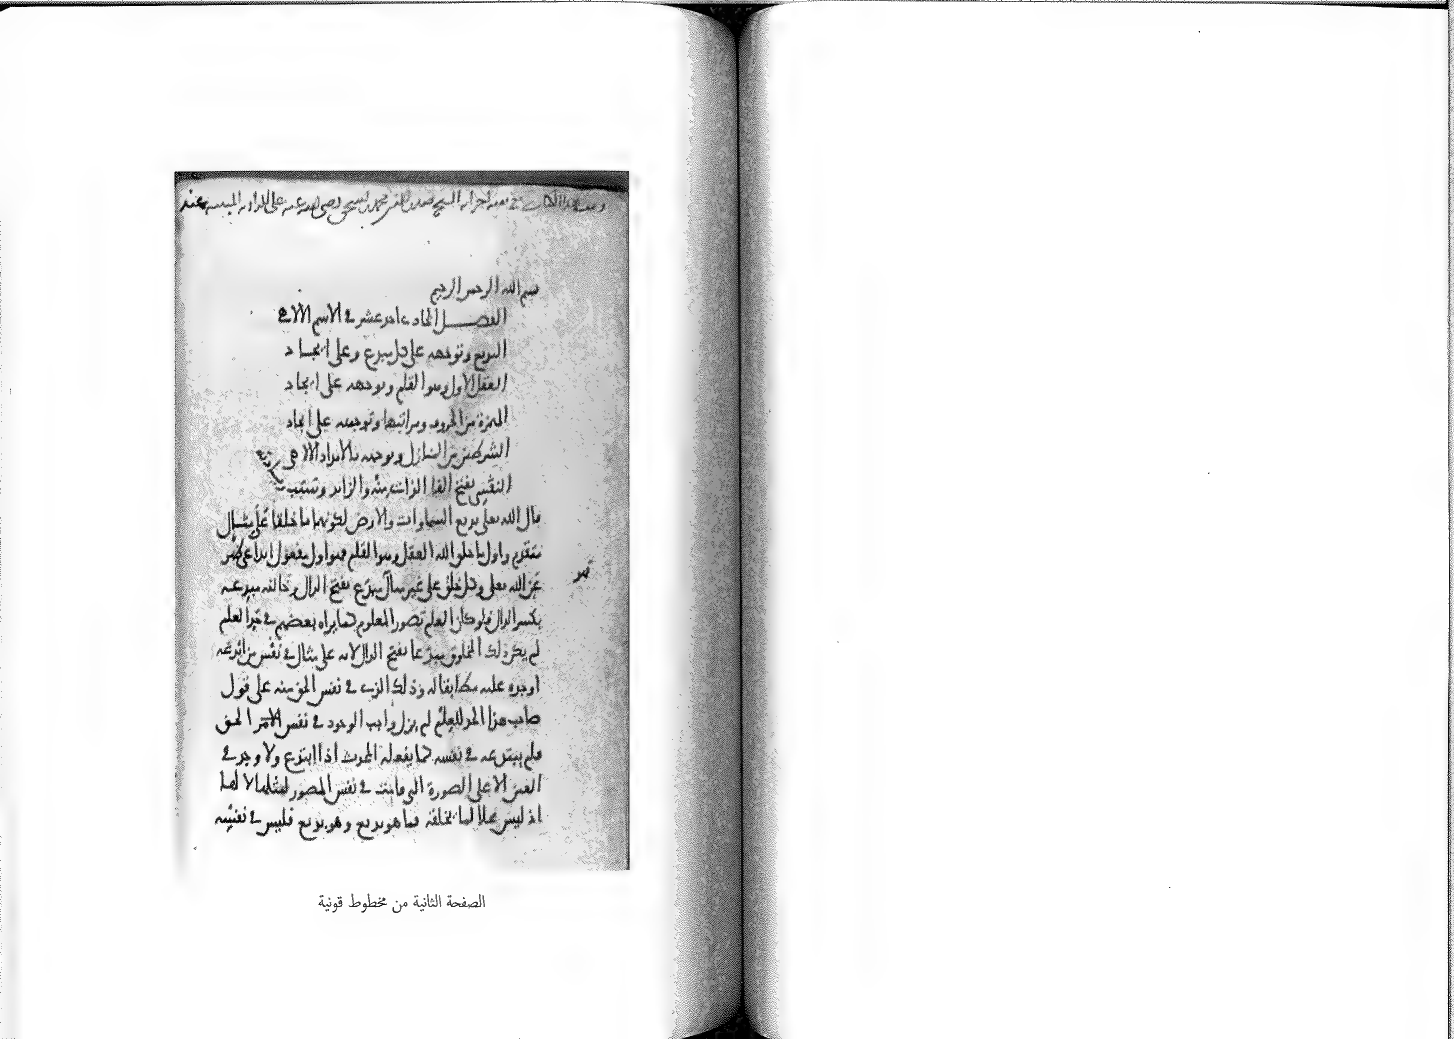 بسم الله الرحمن الرحيم
الفصل الحادي عشر في الاسم الالهي
البديع وتوجهه على كل مبدع وعلى ايجاد
العقل الاول وهو القلم وتوجهه على ايجاد
الهمزة من الحروف ومراتبها وتوجهه على ايجاد
الشرطين من المنازل وتوجهه بالامداد الالهي
النفسي بفتح الفا الذاتي منه والزايد
قال الله تعلى بديع السماوات والارض لكونهما ما خلقا على مثال
متقدم واول ما خلق الله العقل وهو القلم فهو اول مفعول ابداعي ظهر
عن الله تعلى وكل خلق على غير مثال مبدع بفتح الدال وخالقه مبدعه
بكسر الدال فلو كان العلم تصور المعلوم كما يراه بعضهم في حد العلم
لم يكن ذلك المخلوق مبدعا بفتح الدال لانه على مثال في نفس من ابدعه
اوجده عليه مطابقا له وذلك الذي في نفس الحق منه على قول
صاحب هذا الحد للعلم لم يزل واجب الوجود في نفس الحق
فلم يبتدعه في نفسه كما يفعله المحدث اذا ابتدع ولا وجد في
العين الا على الصورة التي قامت في نفس المصور لمثلها لا لها
اذ ليس محلا لما يخلقه فما هو بديع وهو بديع فليس في نفسه
الصفحة الثانية من مخطوط قونية